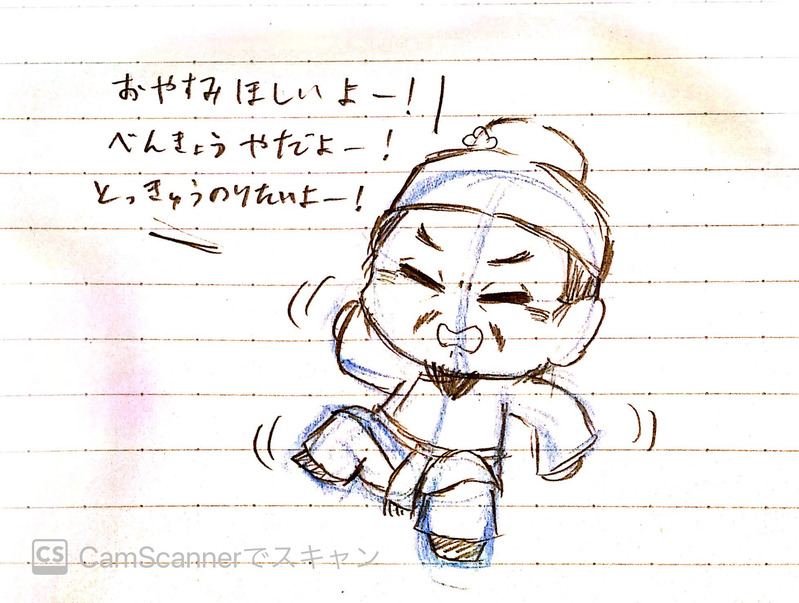 おやすみほしいよー!
べんきょうやだよー!
とっきゅうのりたいよー!
CS CamScannerでスキャン